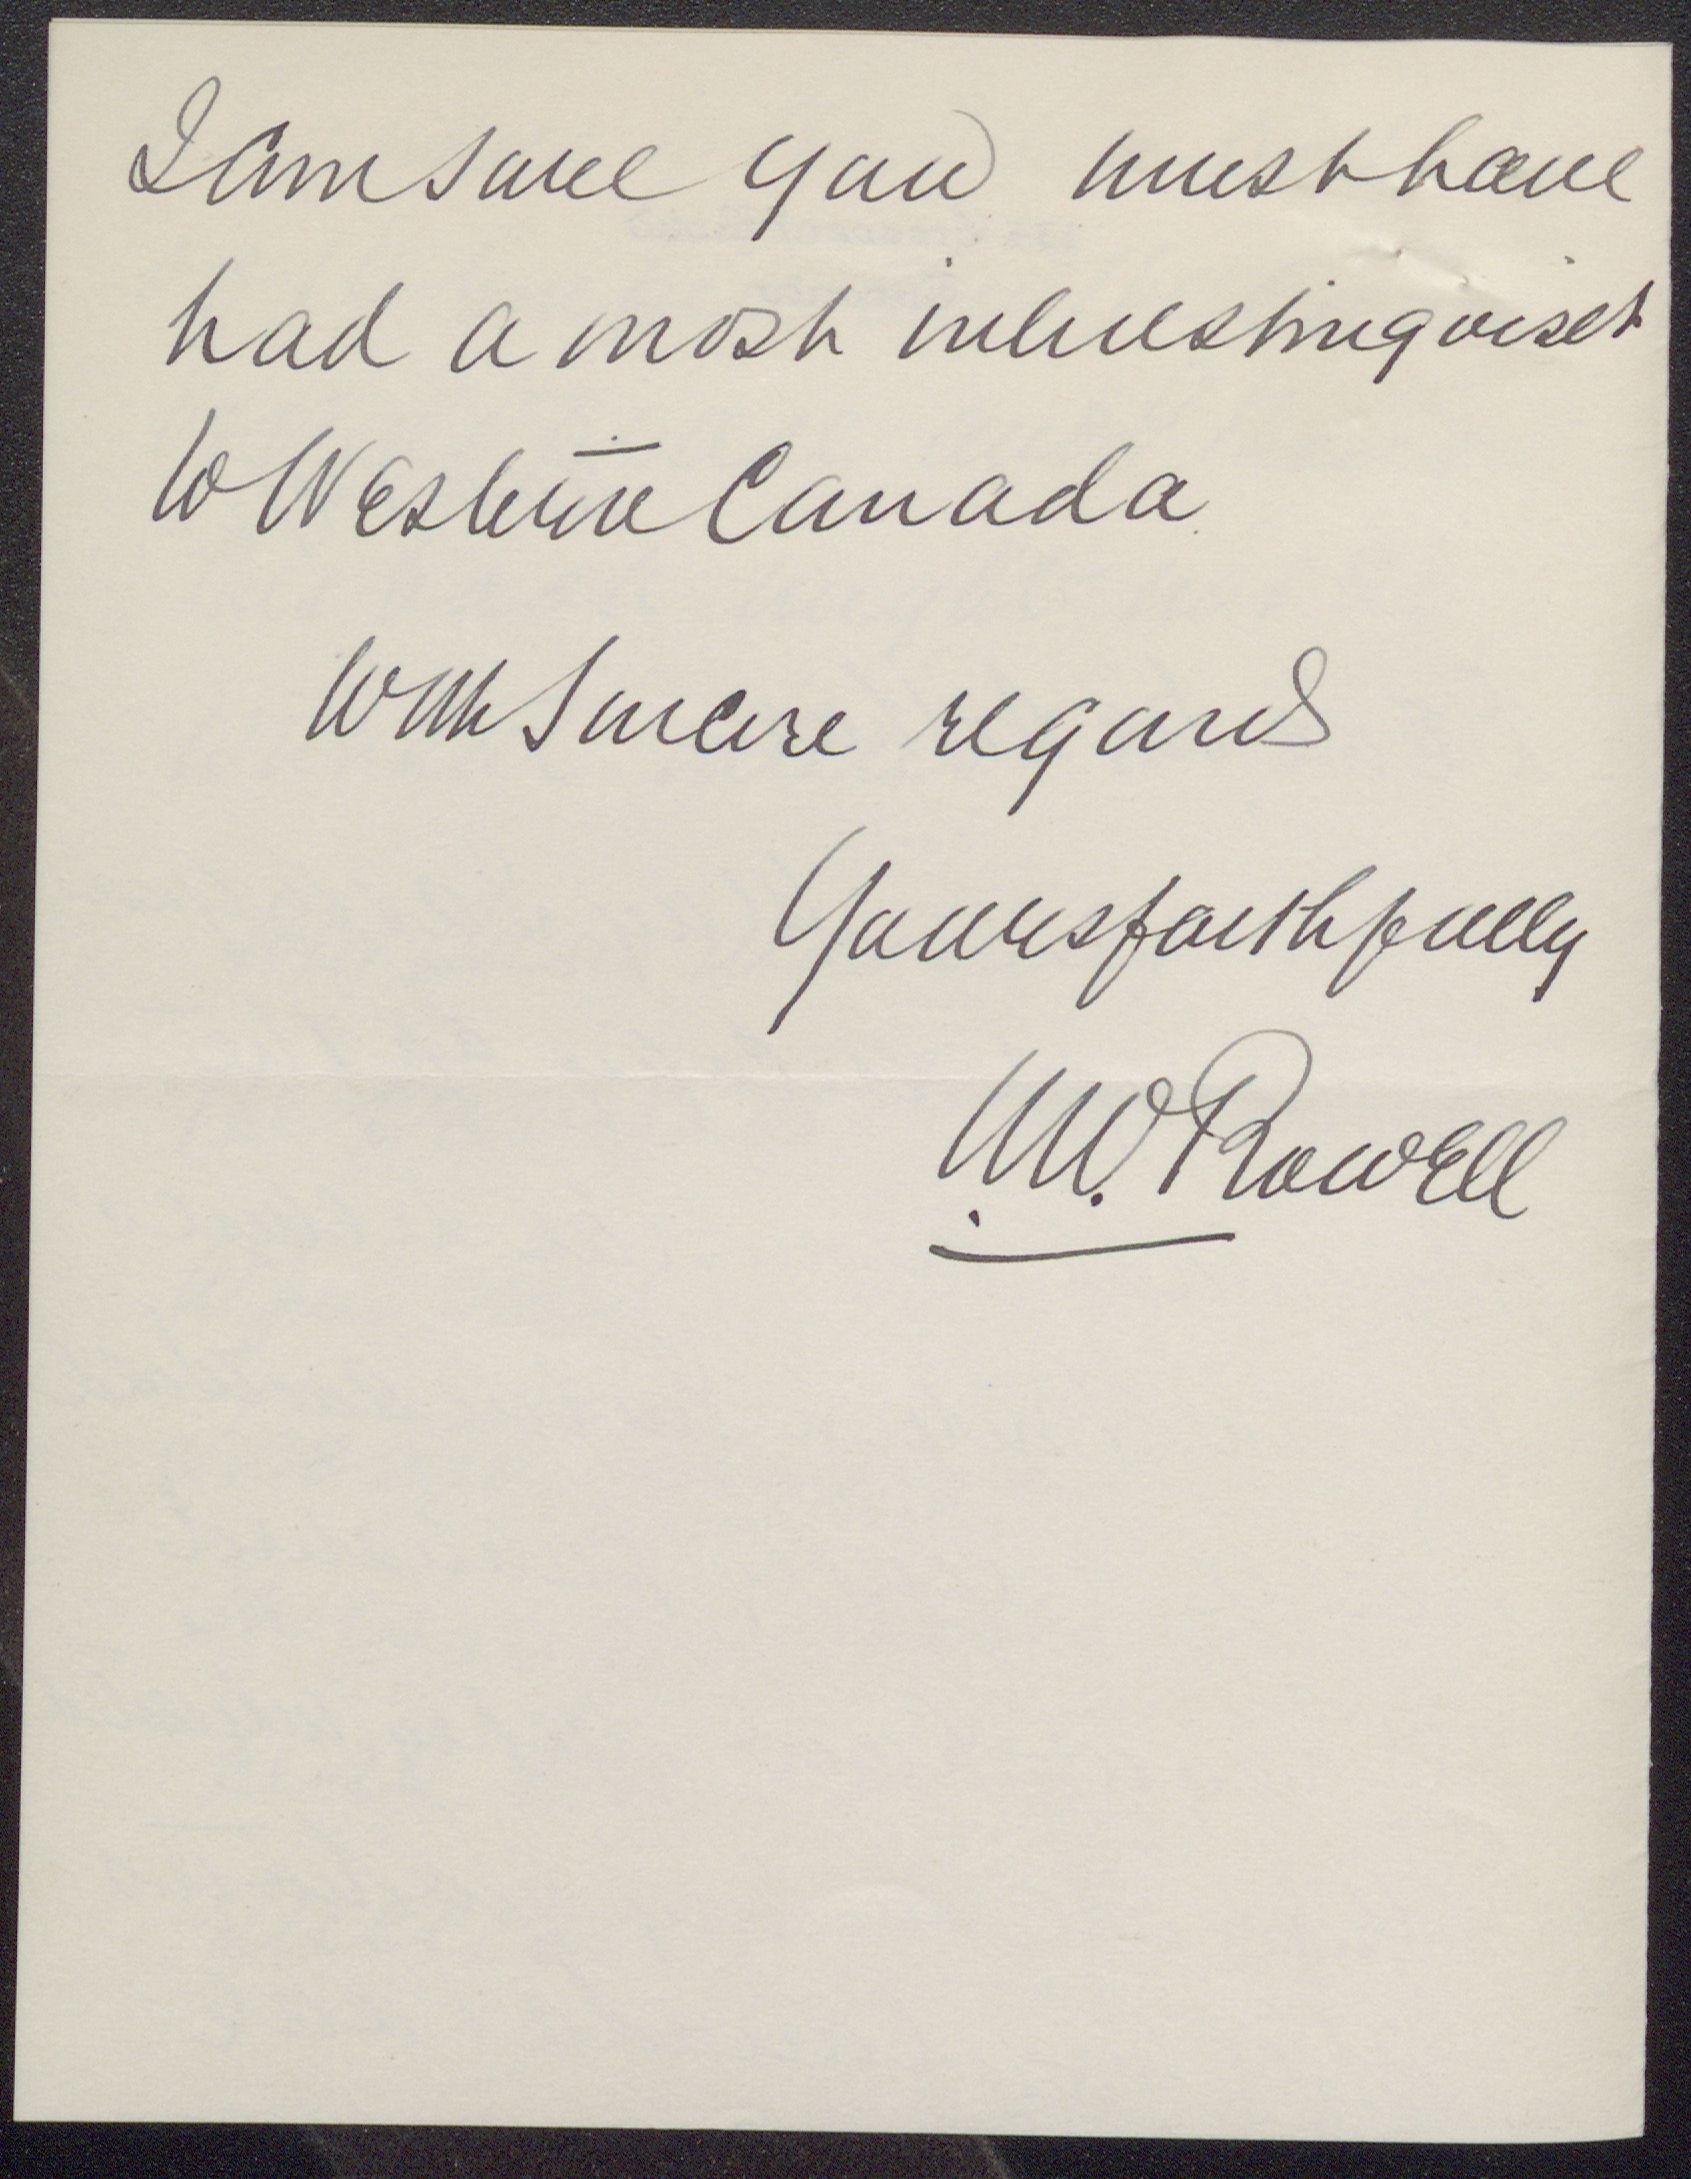 I am sure you must have
had a most interesting visit
to Western Canada.
With sincere regards
Yours faithfully
N.W. Rowell